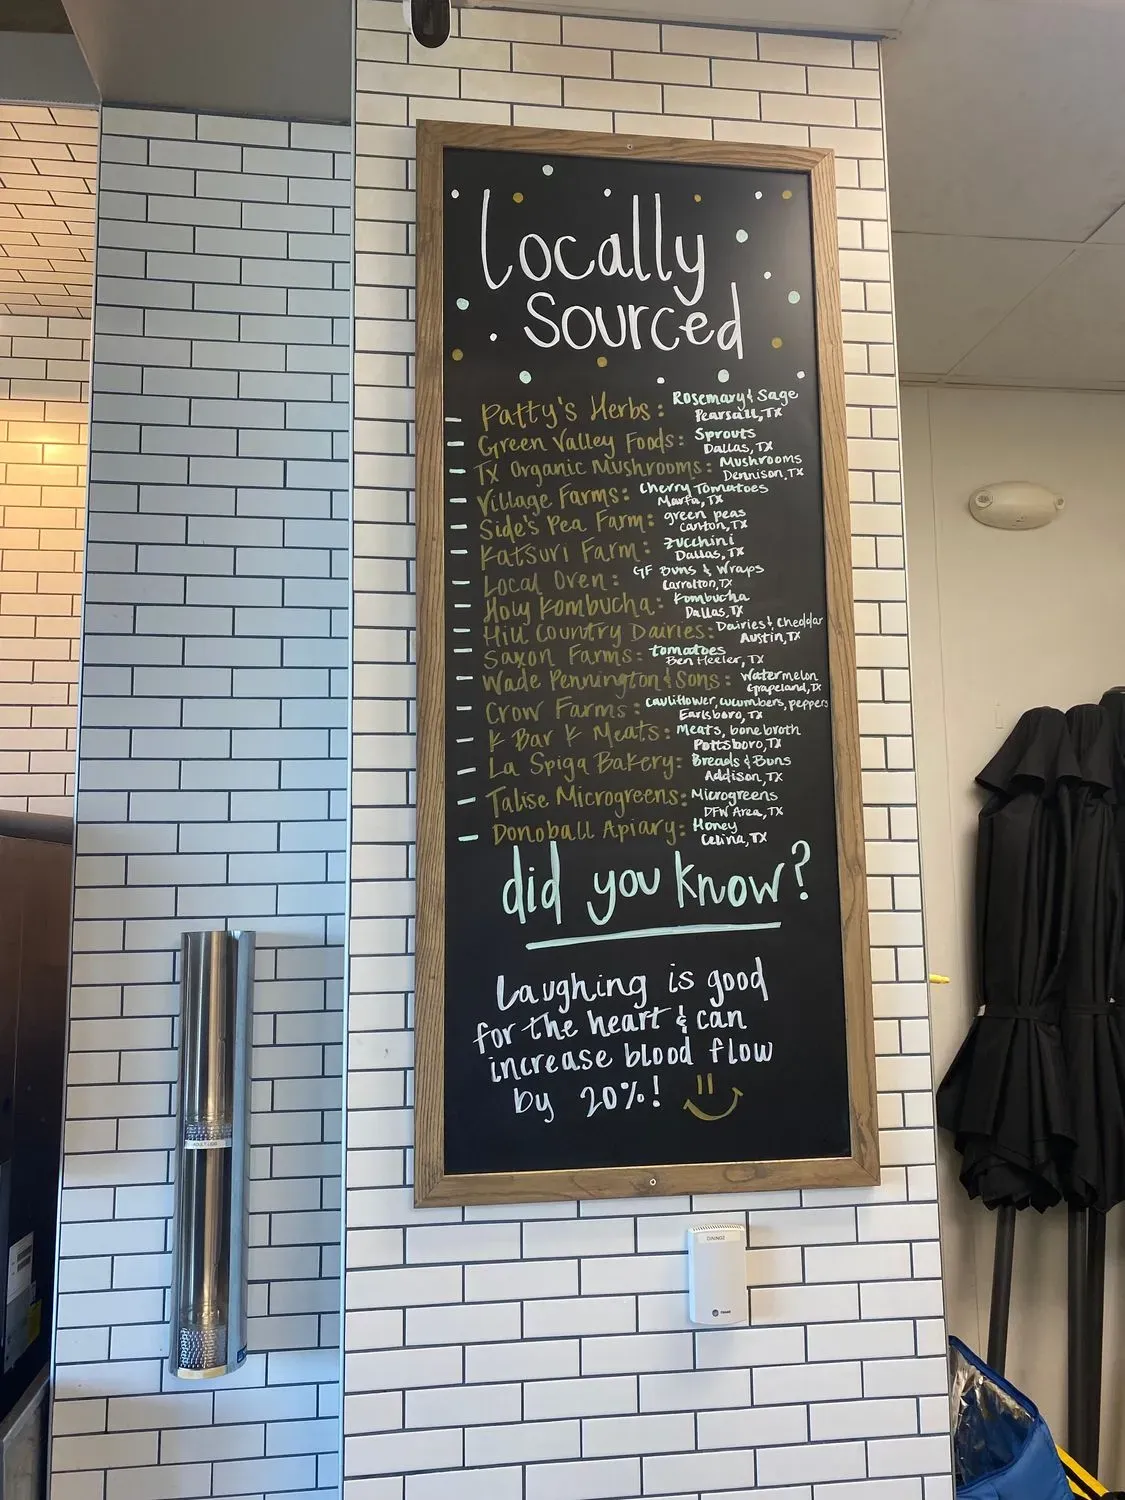 Locally
Sourced
- Patty's Herbs: Rosemary & Sage
Pearsall, TX
- Green Valley Foods: Sprouts
Dallas, TX
- TX Organic Mushrooms: Mushrooms
Dennison, TX
- Village Farms: Cherry Tomatoes
Marfa, TX
- Side's Pea Farm: green peas
Canton, TX
- Katsuri Farm: zucchini
Dallas, TX
- Local Oven: GF Buns & Wraps
Carrolton, TX
- Holy Kombucha: Kombucha
Dallas, TX
- Hill Country Dairies: Dairies & Cheddar
Austin, TX
- Saxon Farms: tomatoes
Ben Heeler, TX
- Wade Pennington & Sons: Watermelon
Grapeland, TX
- Crow Farms: cauliflower, cucumbers, peppers
Earlsboro, TX
- K Bar K Meats: Meats, bone broth
Pottsboro, TX
- La Spiga Bakery: Breads & Buns
Addison, TX
- Talise Microgreens: Microgreens
DFW Area, TX
- Donoball Apiary: Honey
Celina, TX
did you know?
Laughing is good
for the heart & can
increase blood flow
by 20%!
ADULT LIDS
DINING2
TRANE